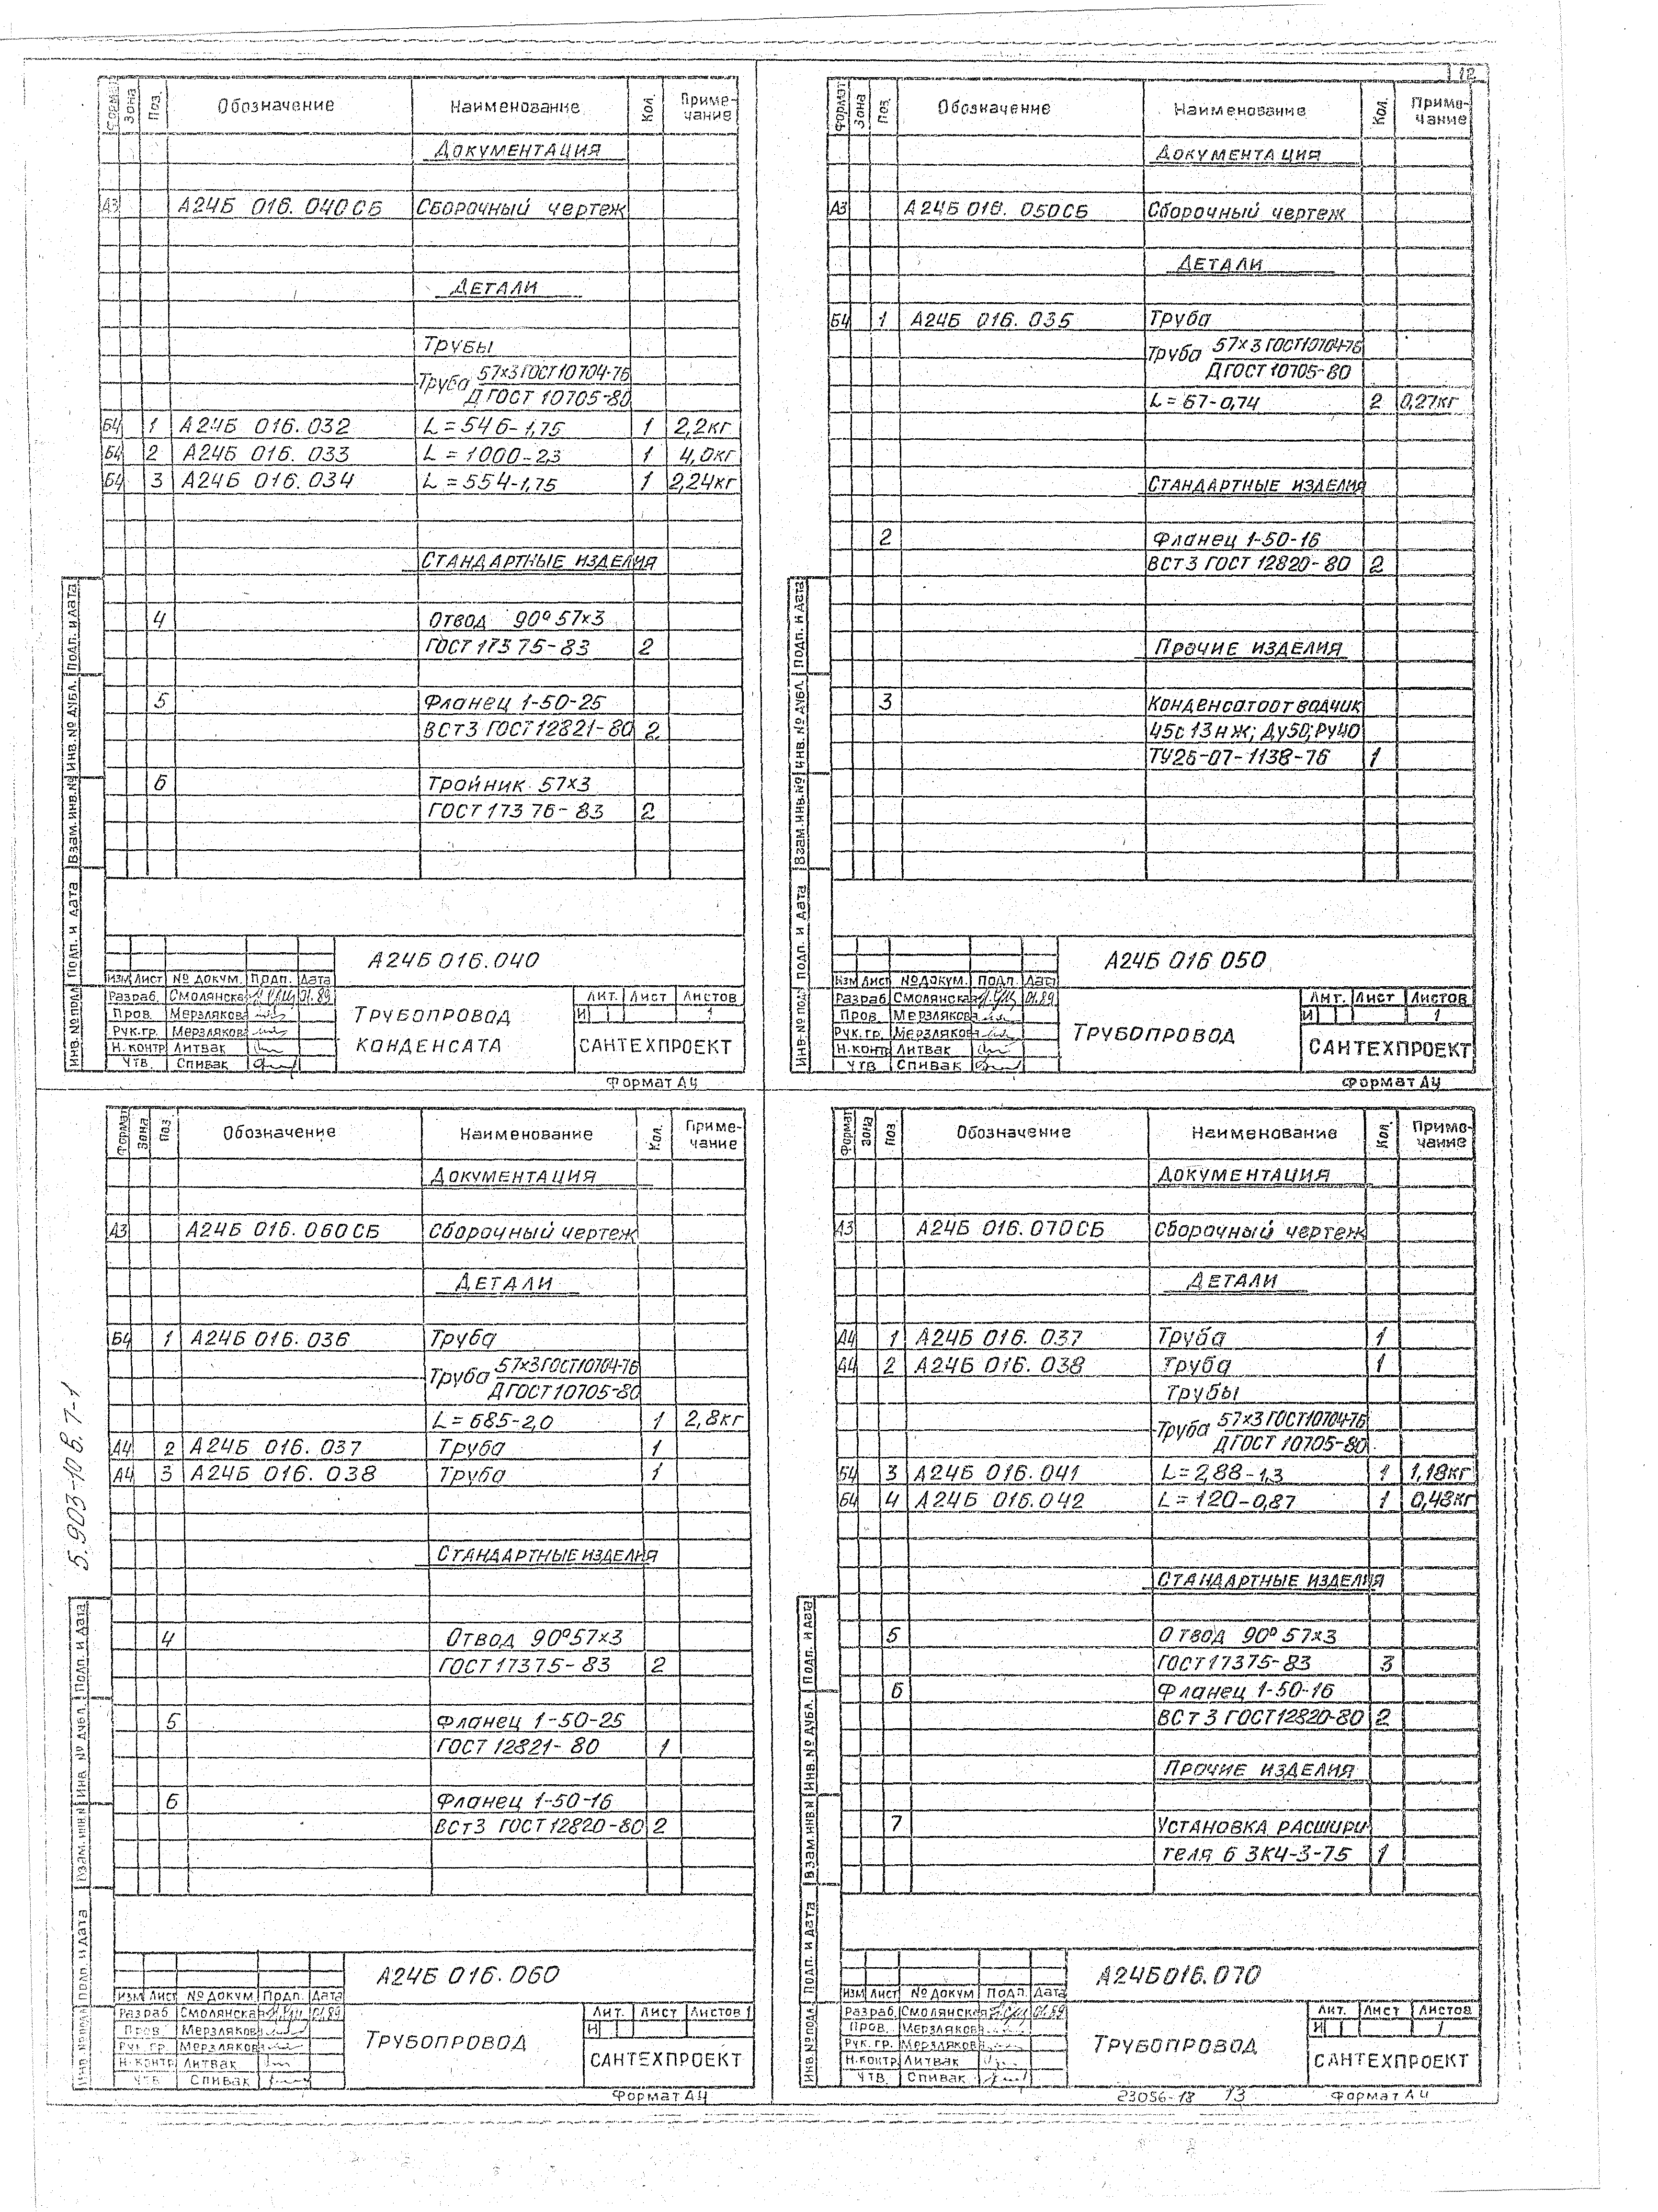 12
Формат Зона Поз. Обозначение Наименование Кол. Приме-
чание
Документация
А3 А24Б 016.040СБ Сборочный чертеж
Детали
Трубы
Труба 57×3 ГОСТ 10704-76
Д ГОСТ 10705-80
Б4 1 А24Б 016.032 L=546-1,75 1 2,2кг
Б4 2 А24Б 016.033 L=1000-2,3 1 4,0кг
Б4 3 А24Б 016.034 L=554-1,75 1 2,24кг
Стандартные изделия
4 Отвод 90° 57×3
ГОСТ 17375-83 2
5 Фланец 1-50-25
ВСт3 ГОСТ 12821-80 2
6 Тройник 57×3
ГОСТ 17376-83 2
Инв.№подл Подп. и дата Взам.инв.№ Инв.№ дубл. Подп. и дата
А24Б 016.040
Изм Лист № докум. Подп. Дата
Разраб. Смолянская 01.89
Пров. Мерзлякова
Рук.гр. Мерзлякова
Н.контр Литвак
Утв. Спивак
Трубопровод
конденсата
Лит. Лист Листов
И 1
САНТЕХПРОЕКТ
Формат А4
Формат Зона Поз. Обозначение Наименование Кол. Приме-
чание
Документация
А3 А24Б 016.050СБ Сборочный чертеж
Детали
Б4 1 А24Б 016.035 Труба
Труба 57×3 ГОСТ 10704-76
Д ГОСТ 10705-80
L=67-0,74 2 0,27кг
Стандартные изделия
2 Фланец 1-50-16
ВСт3 ГОСТ 12820-80 2
Прочие изделия
3 Конденсатоотводчик
45с13нж; Ду50; Ру40
ТУ26-07-1138-76 1
Инв.№подл Подп. и дата Взам.инв.№ Инв.№ дубл. Подп. и дата
А24Б 016 050
Изм Лист № докум. Подп. Дата
Разраб Смолянская 01.89
Пров. Мерзлякова
Рук.гр. Мерзлякова
Н.контр Литвак
Утв Спивак
Трубопровод
Лит. Лист Листов
И 1
САНТЕХПРОЕКТ
Формат А4
Формат Зона Поз. Обозначение Наименование Кол. Приме-
чание
Документация
А3 А24Б 016.060СБ Сборочный чертеж
Детали
Б4 1 А24Б 016.036 Труба
Труба 57×3 ГОСТ 10704-76
Д ГОСТ 10705-80
L=685-2,0 1 2,8кг
А4 2 А24Б 016.037 Труба 1
А4 3 А24Б 016.038 Труба 1
Стандартные изделия
4 Отвод 90° 57×3
ГОСТ 17375-83 2
5 Фланец 1-50-25
ГОСТ 12821-80 1
6 Фланец 1-50-16
ВСт3 ГОСТ 12820-80 2
5.903-10 в.7-1
Инв №подл Подп. и дата Взам.инв№ Инв № дубл. Подп. и дата
А24Б 016.060
Изм Лист № докум Подп. Дата
Разраб Смолянская 01.89
Пров. Мерзлякова
Рук гр. Мерзлякова
Н.контр Литвак
Утв Спивак
Трубопровод
Лит. Лист Листов 1
И
САНТЕХПРОЕКТ
Формат А4
Формат Зона Поз. Обозначение Наименование Кол. Приме-
чание
Документация
А3 А24Б 016.070СБ Сборочный чертеж
Детали
А4 1 А24Б 016.037 Труба 1
А4 2 А24Б 016.038 Труба 1
Трубы
Труба 57×3 ГОСТ 10704-76
Д ГОСТ 10705-80
Б4 3 А24Б 016.041 L=288-1,3 1 1,18кг
Б4 4 А24Б 016.042 L=120-0,87 1 0,48кг
Стандартные изделия
5 Отвод 90° 57×3
ГОСТ 17375-83 3
6 Фланец 1-50-16
ВСт3 ГОСТ 12820-80 2
Прочие изделия
7 Установка расшири
теля 6 ЗК4-3-75 1
Инв.№подл Подп. и дата Взам.инв№ Инв.№ дубл. Подп. и дата
А24Б016.070
Изм Лист № докум Подп. Дата
Разраб Смолянская 01.89
Пров. Мерзлякова
Рук. гр. Мерзлякова
Н.контр Литвак
Утв Спивак
Трубопровод
Лит. Лист Листов
И 1
САНТЕХПРОЕКТ
23056-18 13
Формат А4